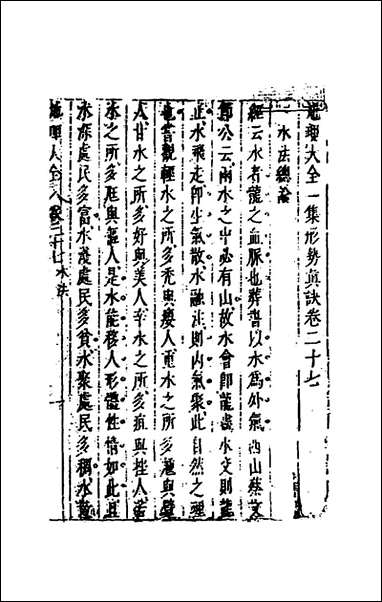 地理大全一集形勢真訣卷二十七
水法總論
經云水者龍之血脈也葬書以水為外氣西山蔡文
節公云兩水之中必有山故水會即龍盡水交則龍
止水飛走即生氣散水融注則內氣聚此自然之理
也嘗觀輕水之所多禿與癭人重水之所多尰與躄
人甘水之所多好與美人辛水之所多疽與痤人苦
水之所多尪與傴人是水能移人形體性情如此且
水深處民多富水淺處民多貧水聚處民多稠水散
地理大全 卷二十七 水法 一